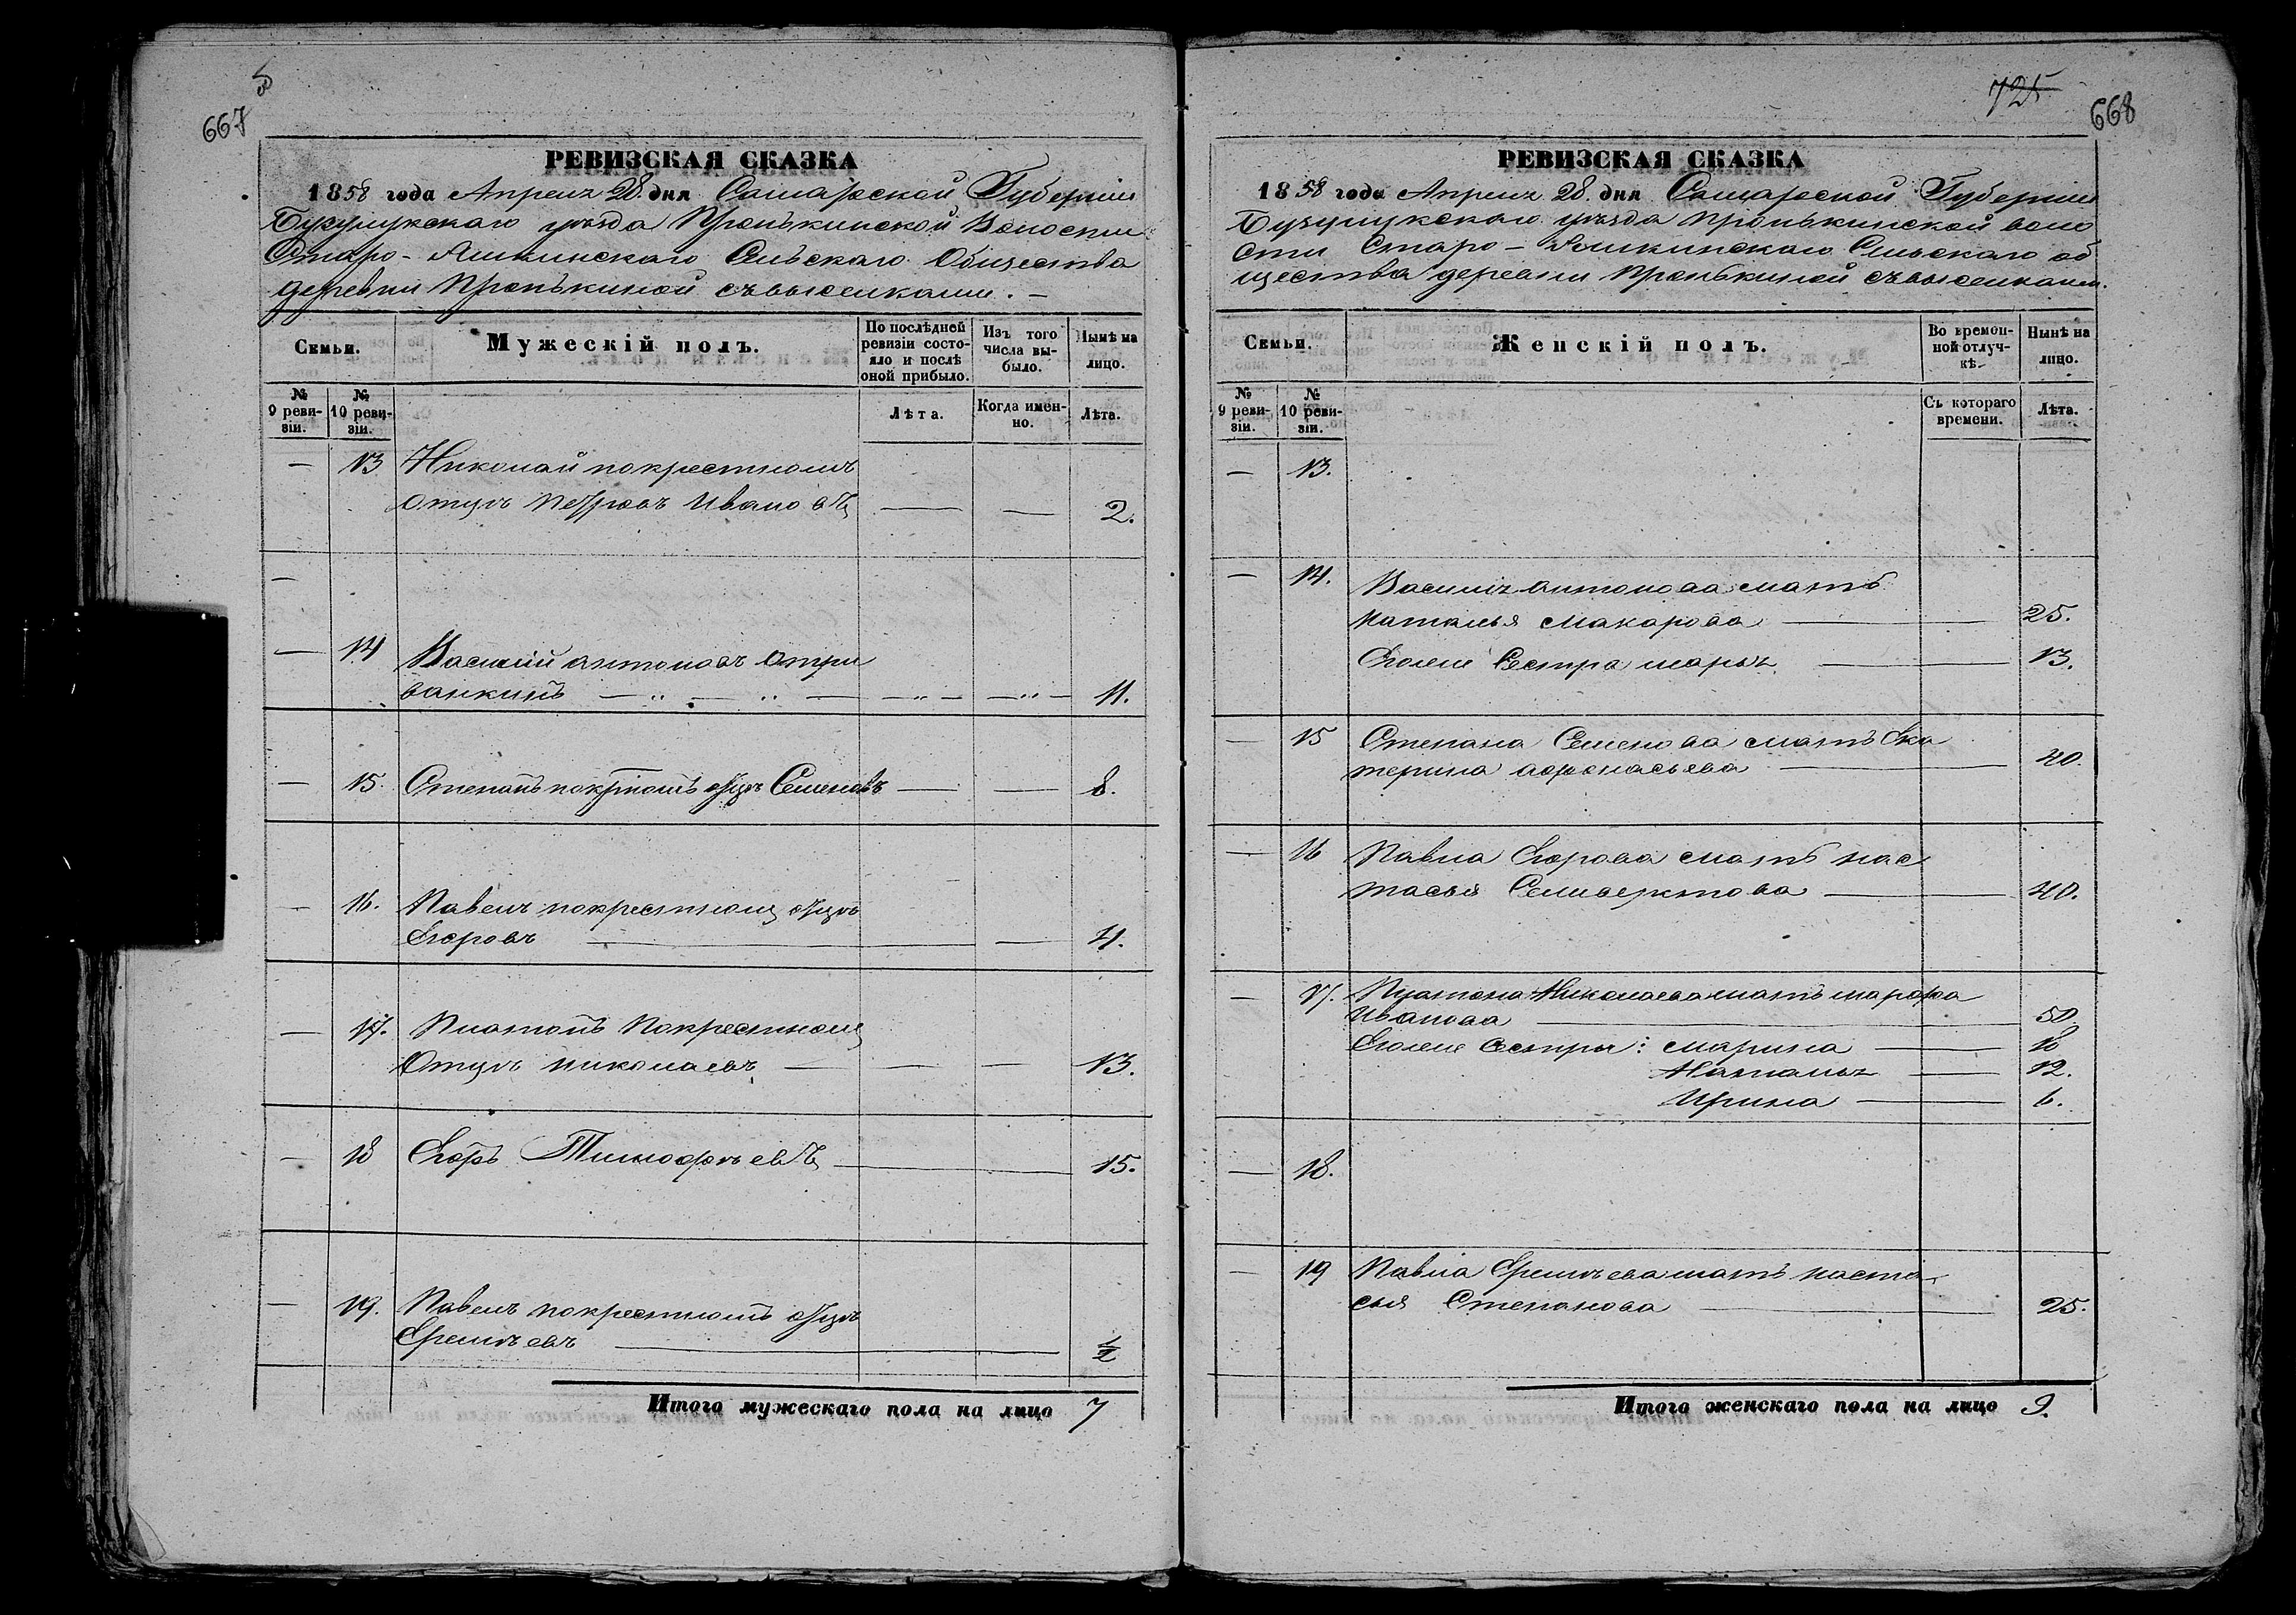 667
725
668
РЕВИЗСКАЯ СКАЗКА
1858 года Апреля 28. дня Самарской Губерніи
Бузулукскаго уѣзда Пронькинской Волости
Старо-Ашкинскаго Сельскаго Общества
деревни Пронькиной съ выселками. —
Семьи.
Мужескій полъ.
По послѣдней ревизіи состояло и послѣ оной прибыло.
Изъ того числа выбыло.
Нынѣ на лицо.
№ 9 ревизіи.
№ 10 ревизіи.
Лѣта.
Когда именно.
Лѣта.
— 13 Николай по крестному
Отцу Петровъ Ивановъ — — 2.
—
— 14 Василій антоновъ Отри
ванкинъ — „ — „ — — „ — — „ — 11.
— 15. Степанъ по крестному отцу Семеновъ — — 8.
— 16. Павелъ по крестному отцу
Егоровъ — — 4.
— 17. Платонъ По крестному
Отцу николаевъ — — — 13.
— 18 Егоръ Тимофѣевъ — — 15.
— 19. Павелъ по крестному отцу
Еремѣевъ — ½
Итого мужескаго пола на лицо 7
РЕВИЗСКАЯ СКАЗКА
1858 года Апреля 28. дня Самарской Губерніи
Бузулукскаго уѣзда Пронькинской воло
сти Старо-Ашкинскаго Сельскаго об
щества деревни Пронькиной съ выселками.
Семьи.
Женскій полъ.
Во временной отлучкѣ.
Нынѣ на лицо.
№ 9 ревизіи.
№ 10 ревизіи.
Съ котораго времени.
Лѣта.
— 13.
— 14. Василія антонова мать
Наталья Макарова — — 25.
Его же Сестра марья — 13.
— 15 Степана Семенова мать Ека
терина афонасьева — 40.
— 16 Павла Егорова мать нас
тасья Селиверстова — — 40.
— 17. Платона Николаева мать марфа
Иванова — 50
Его же Сестры: Марина — — 18
Наталья — 12.
Ирина — 6.
— 18.
— 19 Павла Еремѣева мать наста
сья Степанова — — 25.
Итого женскаго пола на лицо 9.